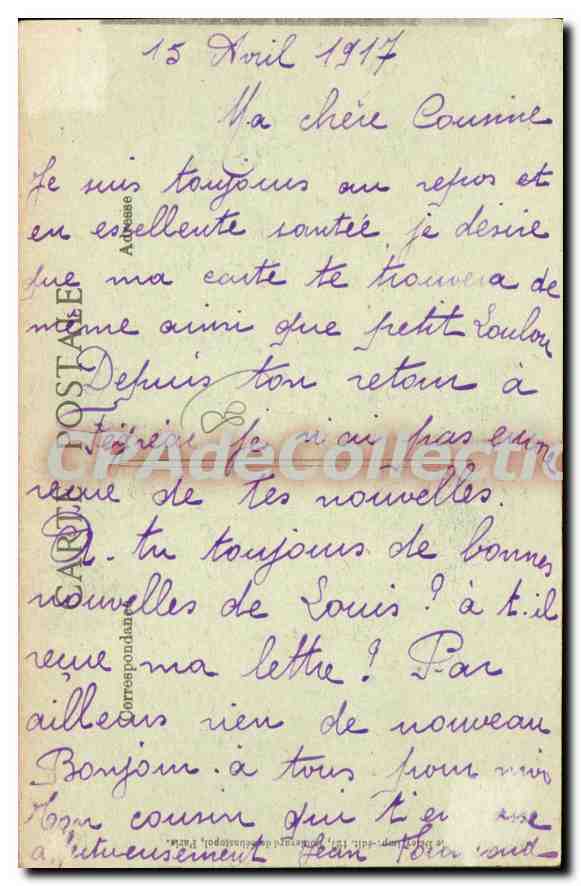 15 Avril 1917
Ma chère Cousine
Je suis toujours au repos et
en exellente santée je désire
que ma carte te trouvera de
même ainsi que petit Loulou
Depuis ton retour à
je n'ai pas encore
reçue de tes nouvelles.
A. tu toujours de bonnes
nouvelles de Louis? à t.il
reçue ma lettre? Par
ailleurs rien de nouveau
Bonjour à tous pour moi
Ton cousin qui t'em sse
affectueusement Jean
CARTE POSTALE
Correspondance
Adresse
CPAdeCollection
8